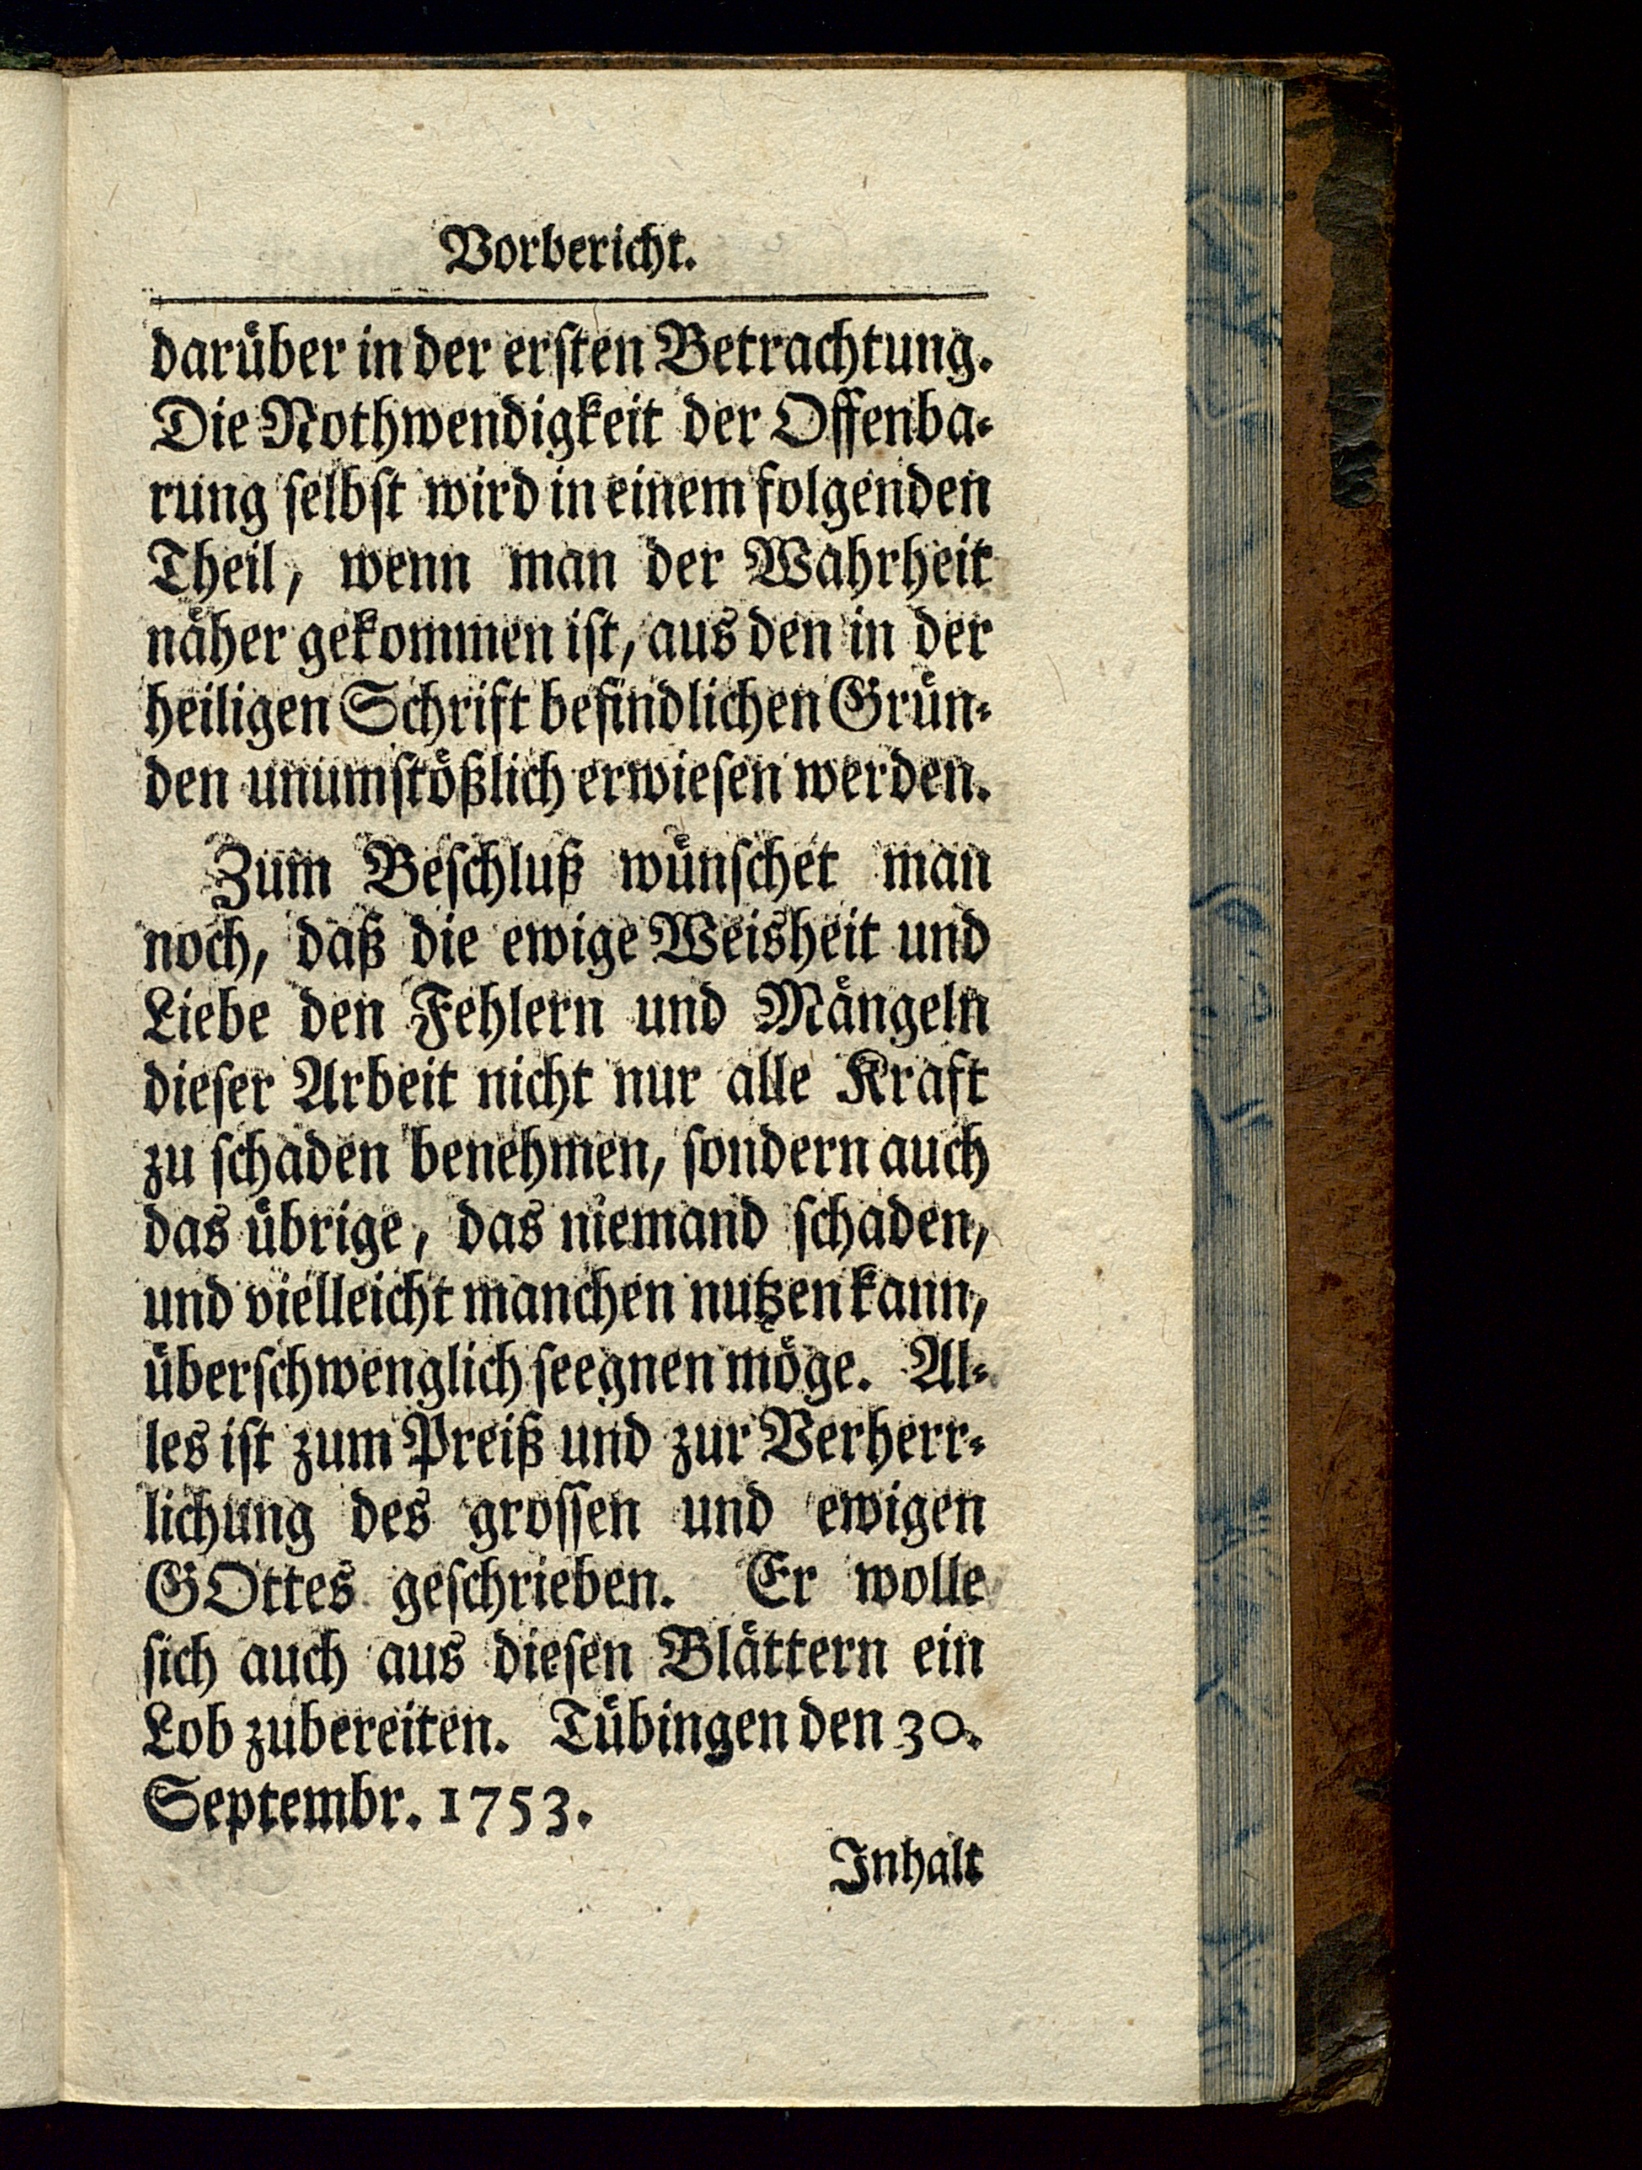 Vorbericht.
darüber in der ersten Betrachtung.
Die Nothwendigkeit der Offenba-
rung selbst wird in einem folgenden
Theil, wenn man der Wahrheit
näher gekommen ist, aus den in der
heiligen Schrift befindlichen Grün-
den unumstößlich erwiesen werden.
Zum Beschluß wünschet man
noch, daß die ewige Weisheit und
Liebe den Fehlern und Mängeln
dieser Arbeit nicht nur alle Kraft
zu schaden benehmen, sondern auch
das übrige, das niemand schaden,
und vielleicht manchen nutzen kann,
überschwenglich seegnen möge. Al-
les ist zum Preiß und zur Verherr-
lichung des grossen und ewigen
GOttes geschrieben. Er wolle
sich auch aus diesen Blättern ein
Lob zubereiten. Tübingen den 30.
Septembr. 1753.
Inhalt